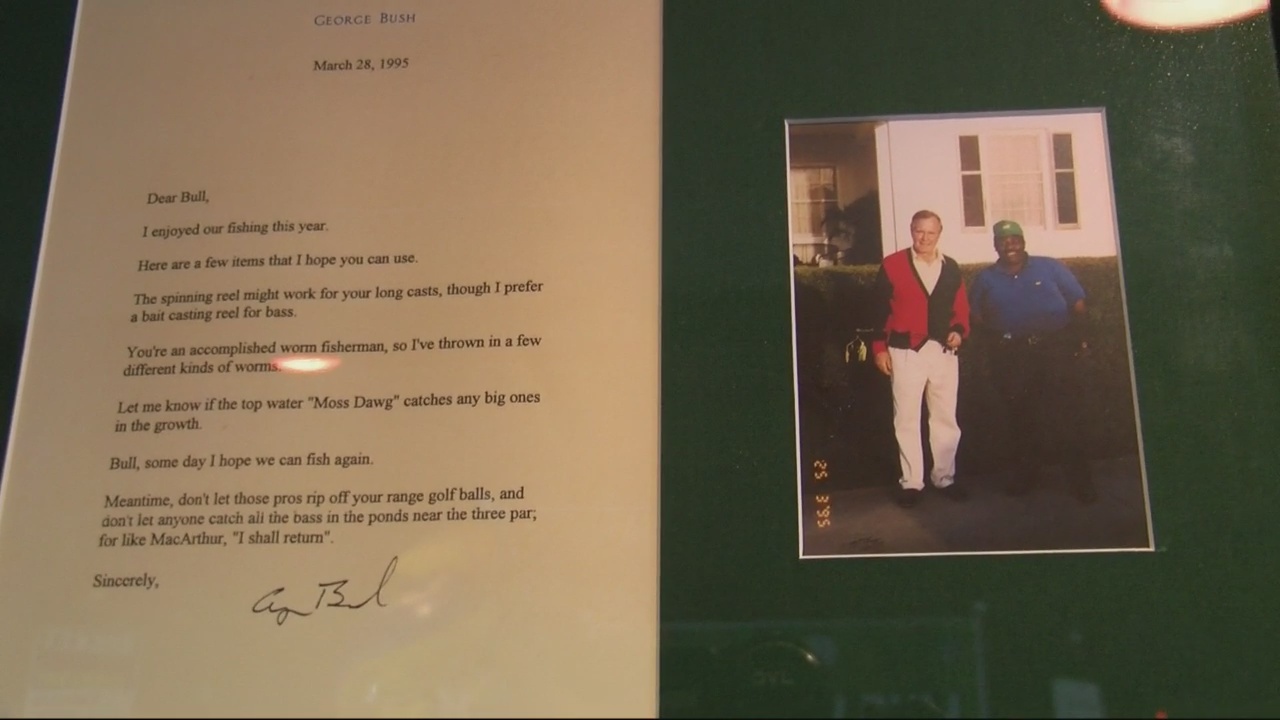 GEORGE BUSH
March 28, 1995
Dear Bull,
I enjoyed our fishing this year.
Here are a few items that I hope you can use.
The spinning reel might work for your long casts, though I prefer
a bait casting reel for bass.
You're an accomplished worm fisherman, so I've thrown in a few
different kinds of worms.
Let me know if the top water "Moss Dawg" catches any big ones
in the growth.
Bull, some day I hope we can fish again.
Meantime, don't let those pros rip off your range golf balls, and
don't let anyone catch all the bass in the ponds near the three par;
for like MacArthur, "I shall return".
Sincerely,
G Bush
25 3 '95